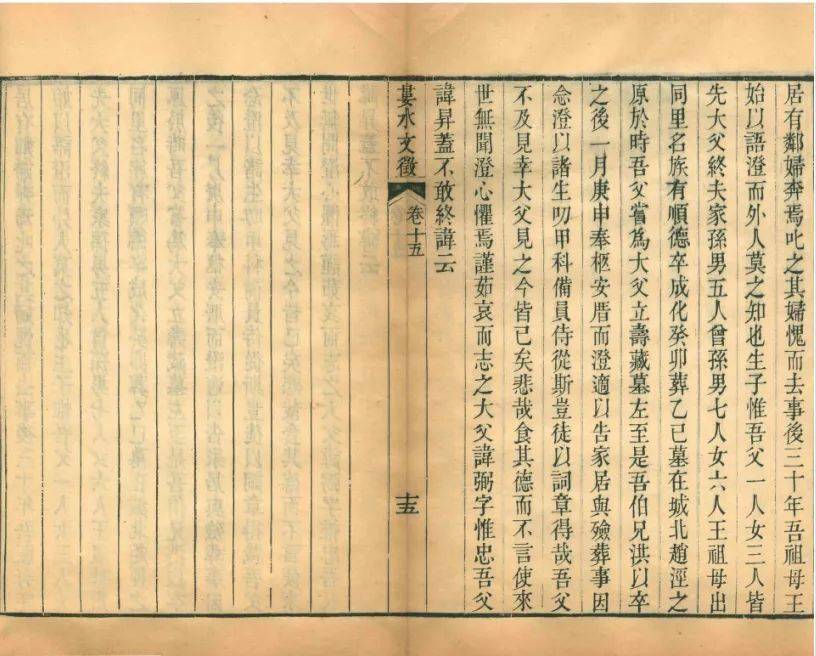 居有鄰婦奔焉叱之其婦愧而去事後三十年吾祖母王
始以語澄而外人莫之知也生子惟吾父一人女三人皆
先大父終夫家孫男五人曾孫男七人女六人王祖母出
同里名族有順德卒成化癸卯葬乙巳墓在城北趙涇之
原於時吾父嘗爲大父立壽藏墓左至是吾伯兄洪以卒
之後一月庚申奉柩安厝而澄適以告家居與殮葬事因
念澄以諸生叨甲科備員侍從斯豈徒以詞章得哉吾父
不及見幸大父見之今皆已矣悲哉食其德而不言使來
世無聞澄心懼焉謹茹哀而志之大父諱弼字惟忠吾父
諱昇蓋不敢終諱云
婁水文徵
卷十五
十五